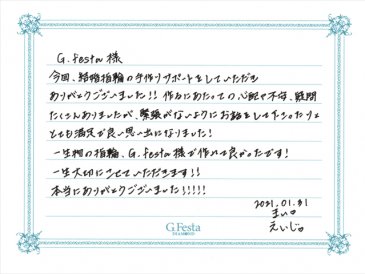 G.festa 様
今回、結婚指輪の手作りサポートをしていただき
ありがとうございました!! 作るにあたっての心配や不安、疑問
たくさんありましたが、緊張がないようにお話をして下さったりと
とても満足が良い思い出になりました!
一生物の指輪、G.festa様で作れて良かったです!
一生大切にさせていただきます!!
本当にありがとうございました!!!!!
2021.01.31
まい
えいじ
G.Festa